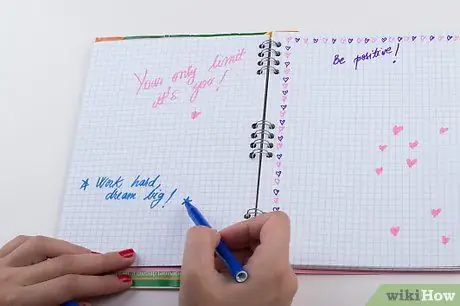 Your only limit
it's you!
Be positive!
* Work hard,
dream big! *
wikiHow